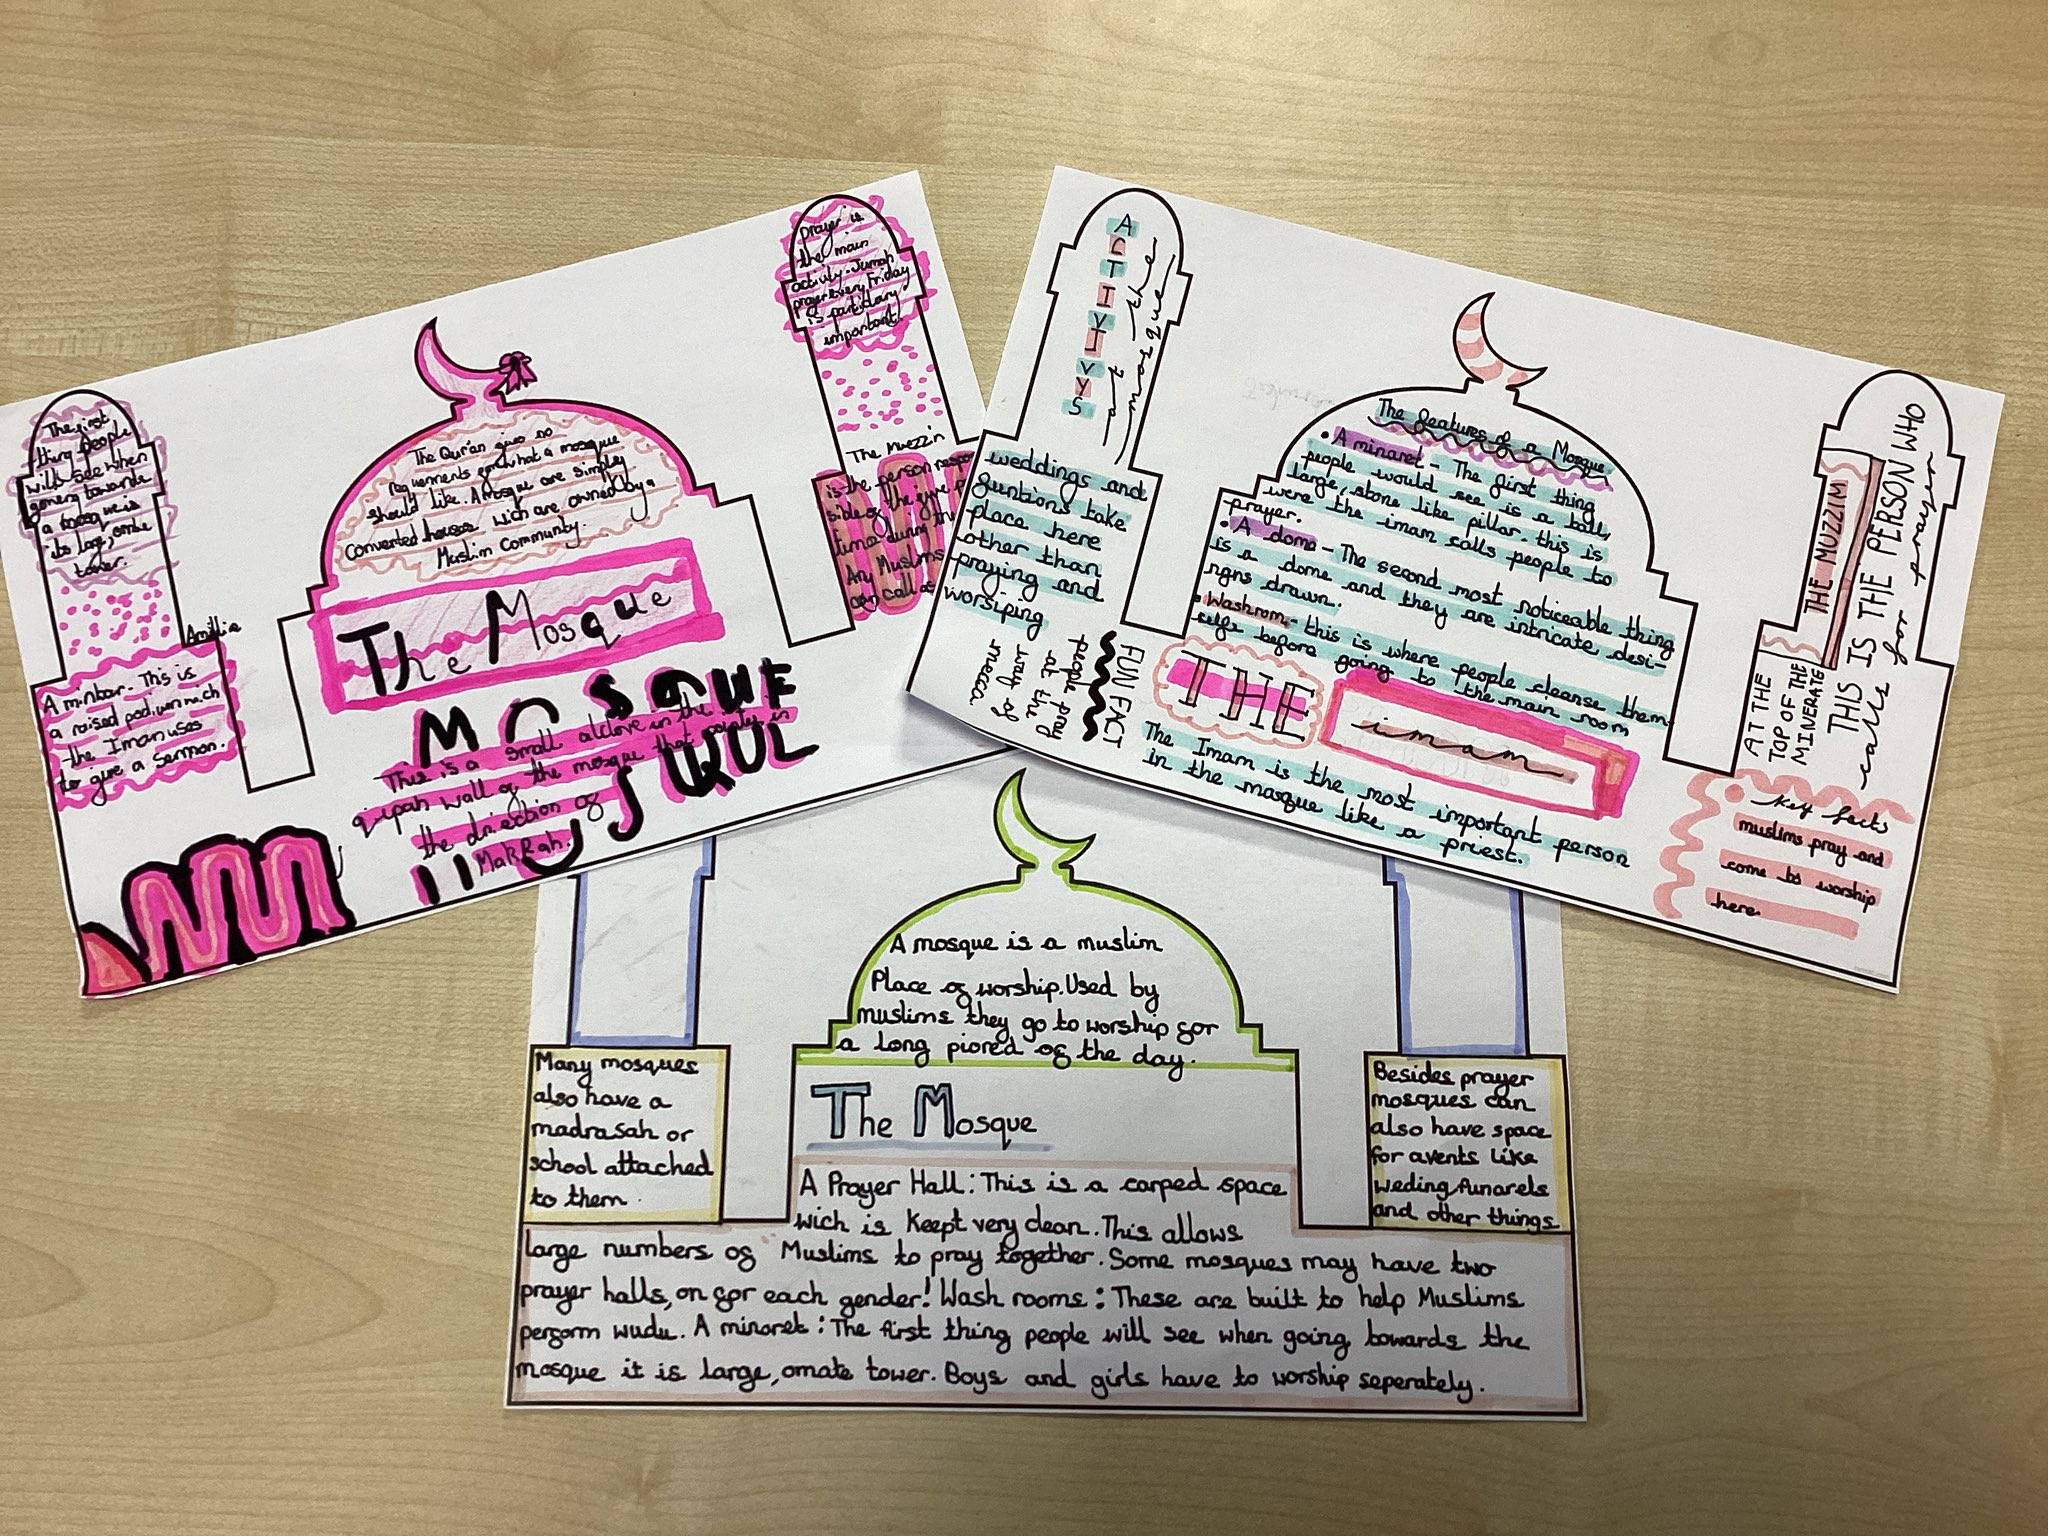 The first
thing people
will side when
gomery towards
a mosque is
its large, ornke
tower.
A minbar. This is
a raised podium which
the Iman uses
to give a Sermon.
Amillia
The Qur'an gives no
requirements gor what a mosque
should like. A mosque are simpley
Converted houses wich are owned by a
Muslim Community.
The Mosque
MOSQUE
This is a small alclove in the
qipah wall of the mosque that points in
the driection of
MakRah.
prayer is
the main
activity. Jumah
prayer Every Friday
is particlary
important.
The Muezzin
is the person
side of the give
time during the
Any Muslims
can call as
ArTIVIVYS
at the
mosque
weddings and
funtions take
place here
other than
praying and
worsiping
FUN FACT
people pray
at the
way of
mecca
The features of a Mosque
• A minaret - The first thing
people would see is a tall,
large, stone like pillar. this is
were the imam calls people to
prayer.
• A dome - The second most noticeable thing
is a dome and they are intricate, desi-
ngns drawn.
• Washrom - this is where people cleanse them-
selfs before going to the main room
THE
imam
The Imam is the most important person
in the masque like a priest.
THE MUZZIM
THIS IS THE PERSON WHO
calls for prayer
AT THE
TOP OF THE
MINVERATE
Key facts
muslims pray and
come to worship
here
A mosque is a muslim
Place of worship. Used by
muslims they go to worship for
a long piored of the day.
The Mosque
Many mosques
also have a
madrasah or
school attached
to them.
Besides prayer
mosques can
also have space
for avents like
weding, funarels
and other things
A Prayer Hall: This is a carped space
wich is Keept very clean. This allows
large numbers of Muslims to pray together. Some mosques may have two
prayer halls, on for each gender! Wash rooms: These are built to help Muslims
perform wudu. A minaret: The first thing people will see when going towards the
mosque it is large, ornate tower. Boys and girls have to worship seperately.